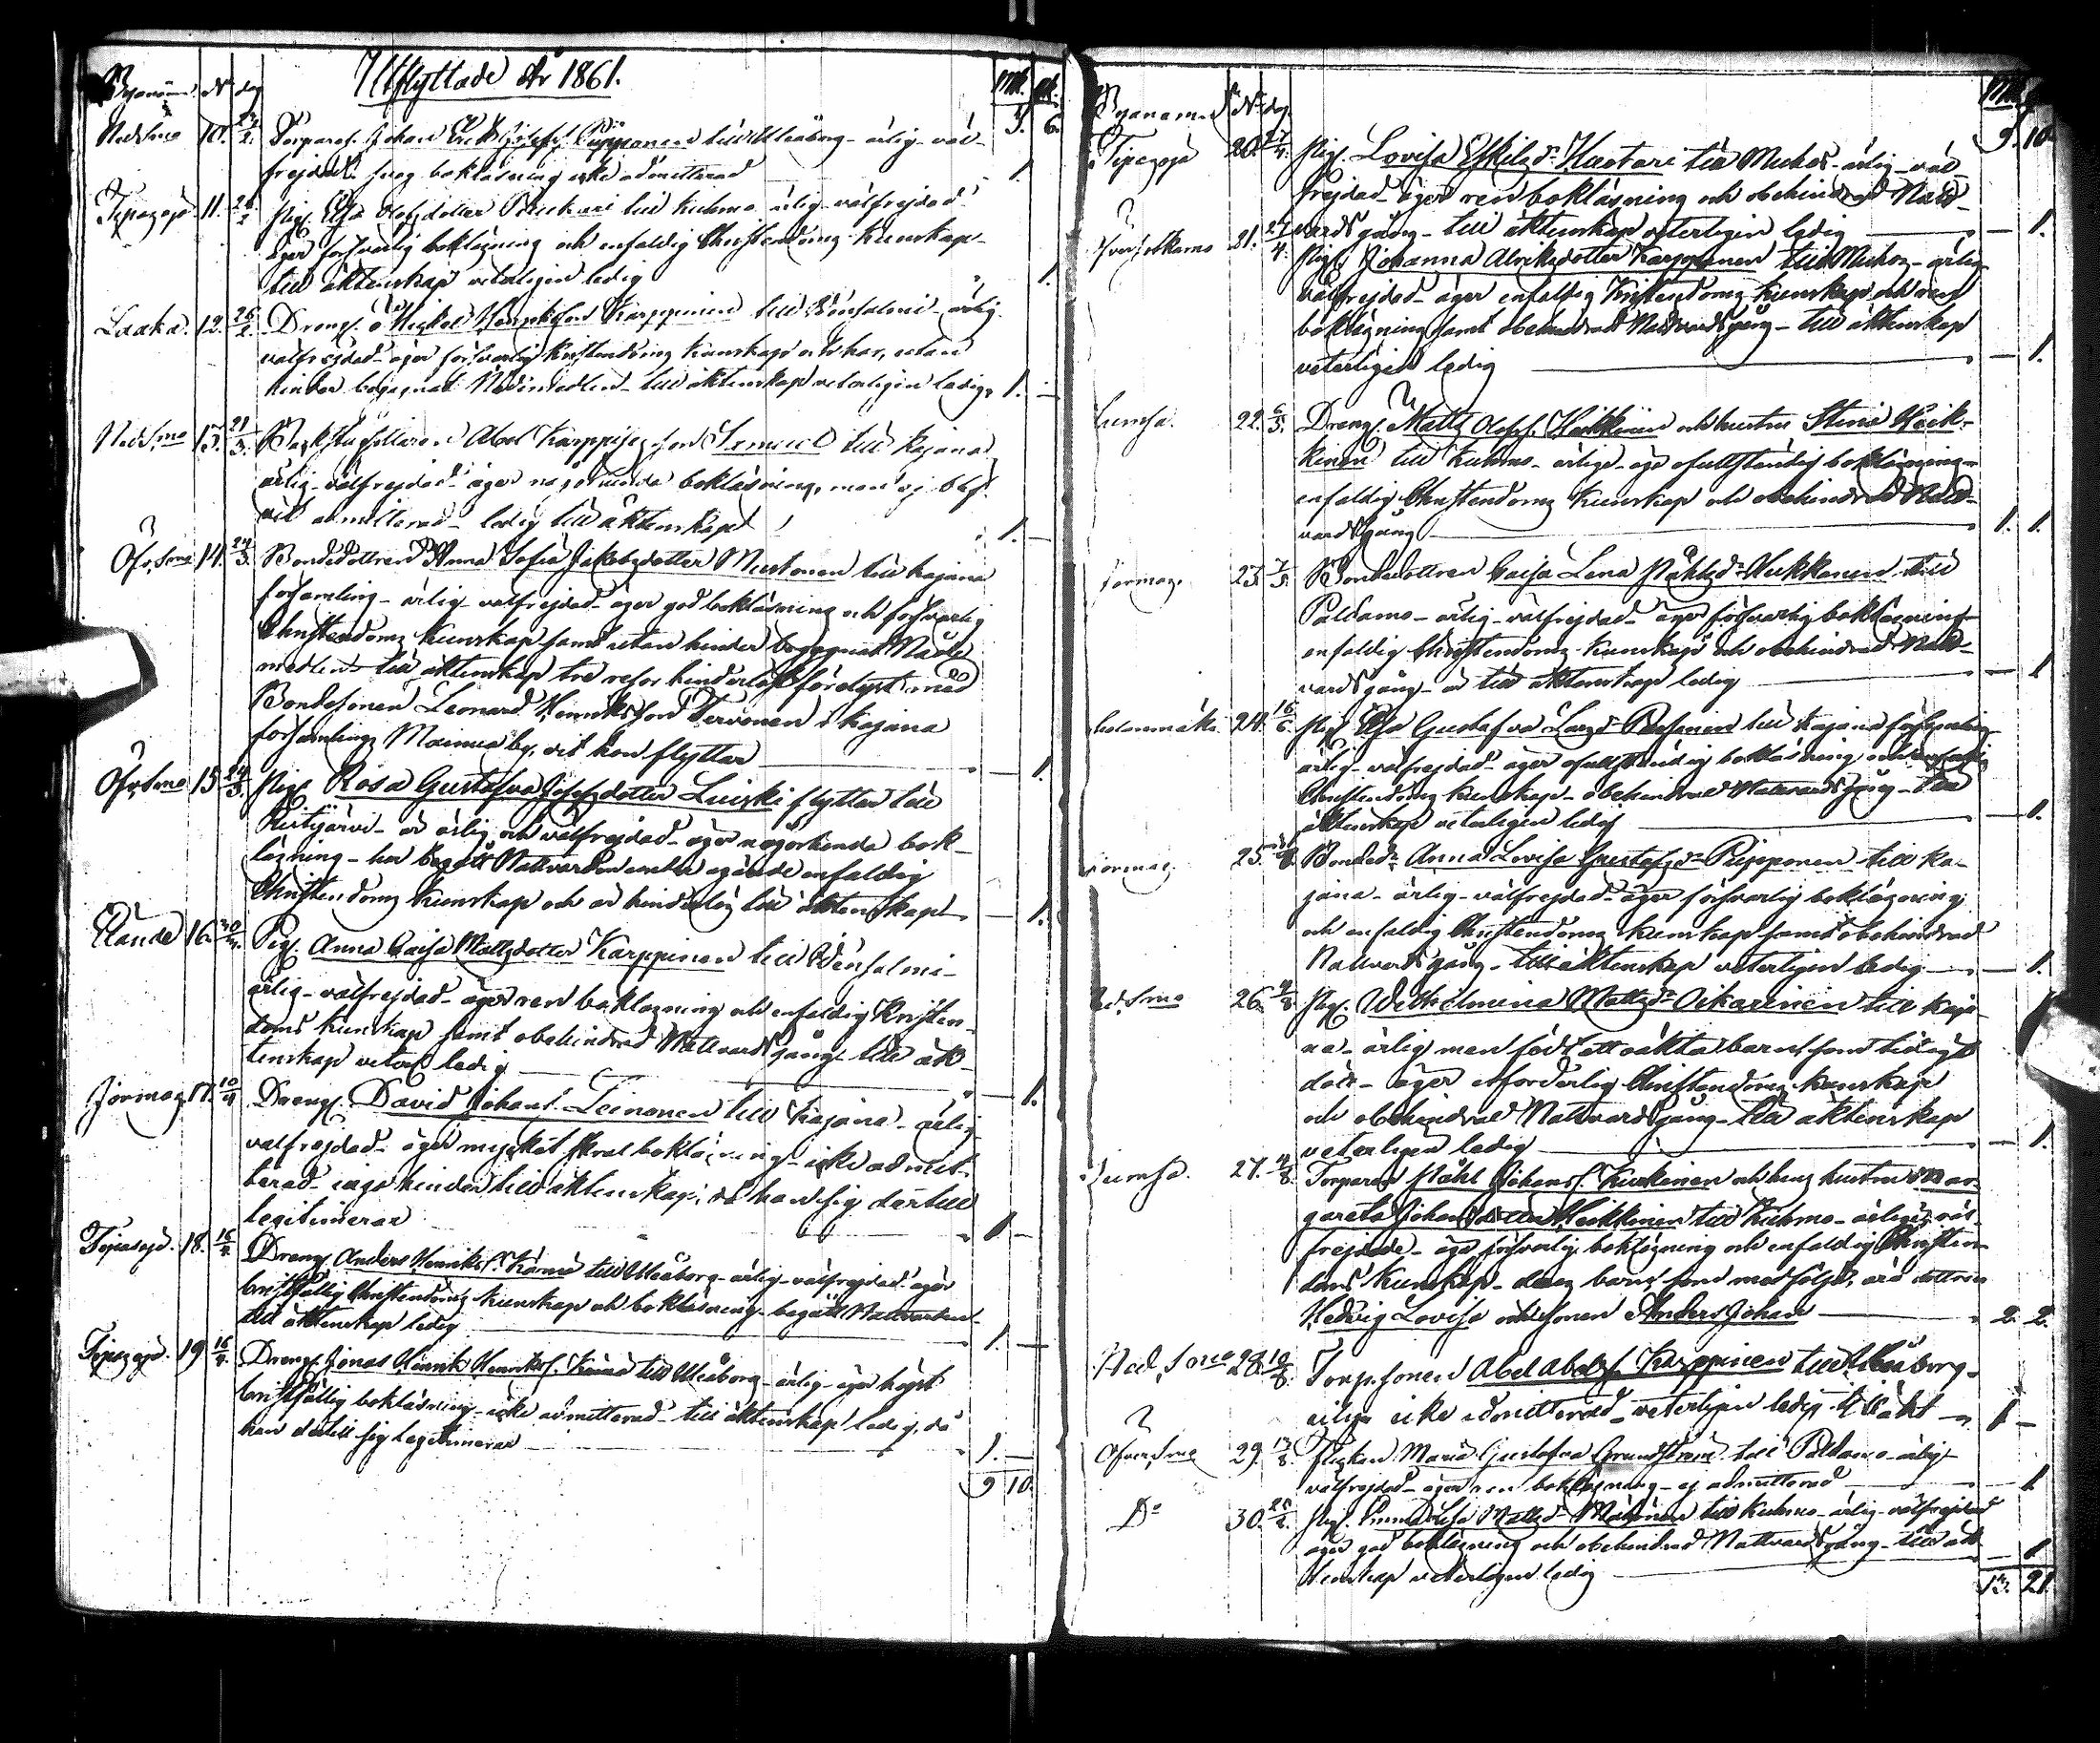 Utflyttade År 1861.
Byanamn No dag Mk. Qk.
3. 6.
Ned.Smo 10. 27/2. Torpares. Johan Erik Josefs. Piipponen till Uleåborg - ärlig - väl-
frejdad. svag bokläsning icke admitterad 1.
Tipasoja 11. 26/2 Pig. Elsa Olofsdotter till Kuhmo ärlig - välfrejdad
äger försvarlig bokläsning och enfaldig Christendoms kunskap -
till äktenskap veterligen ledig 1.
Laaka. 12. 26/2. Dreng. Mickel Henriksson Karppinen till Idensalmi - ärlig
välfrejdad - äger försvarlig Kristendoms kunskap och har, utan
hinder begagnat Nådemedlen - till äktenskap veterligen ledig 1. -
Ned.Smo 13. 21/3. Abel Karppisesson Lemuel till Kajana
ärlig - välfrejdad - äger någorlunda bokläsning, men ej blif-
vit admitterad - ledig till äktenskap 1. -
Öfv.Smo 14. 24/3. Bondedottren Anna Sofia Jakobsdotter Mustonen till Kajana
församling - ärlig - välfrejdad - äger god bokläsning och försvarlig
Christendoms kunskap samt utan hinder begagnat Nåde
medlen - till äktenskap tre resor hinderlöst förelyst med
Bondesonen Leonard Henriksson Tervonen i Kajana
församlings Mainua by, dit hon flyttar 1.
Öfv.Smo 15 24/3. Pig. Rosa Gustafva Josefsdotter Luiski flyttar till
Ristijärvi - är ärlig och välfrejdad - äger någorlunda bok-
läsning - har begått Nattvarden enfaldig
Christendoms kunskap och är hinderlös till äktenskap - 1.
16. Pig. Anna Caisa Mattsdotter Karppinen till Idensalmi -
ärlig - välfrejdad - äger ren bokläsning och enfaldig Kristen-
doms kunskap samt obehindrad Nattvardsgång till äk-
tenskap veterl. ledig 1.
Jormas 17. 10/4 Dreng. David Johans. Leinonen till Kajana - ärlig
välfrejdad - äger mycket skral bokläsning - icke admit-
terad - inga hinder till äktenskap, då han sig dertill
legitimerar 1 -
Tipasoja. 18. 16/4. Dreng. Anders Henriks. Kärnä till Uleåborg - ärlig - välfrejdad äger
bristfällig Christendoms kunskap och bokläsning - begått Nattvarden -
till äktenskap ledig 1. -
Tipasoja. 19 16/4. Dreng. Jonas Henrik Henriks. Kärnä till Uleåborg - ärlig - äger högst
bristfällig bokläsning - icke admitterad - till äktenskap ledig, då
han dertill sig legitimerar 1. -
9 10.
Byanamn No dag. Mk
9. 10.
Tipasoja 20. 27/4. Pig. Lovisa Eskilsdr Kustari till Muhos - ärlig - väl
frejdad - äger ren bokläsning och obehindrad Natt-
vardsgång - till äktenskap veterligen ledig - 1.
21. 27/4. Pig. Johanna Alriksdotter Karppinen till Muhos - ärlig
välfrejdad - äger enfaldig Kristendoms kunskap och ren
bokläsning samt obehindrad Nattvardsgång - till äktenskap
veterligen ledig - 1.
Jumsa. 22. 6/5. Dreng. Matts Olofs. Heikkinen och hustru Stina Heik-
kinen till Kuhmo - ärlige - äga ofullständig bokläsning -
enfaldig Christendoms kunskap och obehindrad Natt-
vardsgång 1. 1.
Jormas. 23. 7/5. Bondedottren Caisa Lena Påhlsdr Kukkonen till
Paldamo - ärlig - välfrejdad - äger försvarlig bokläsning -
enfaldig Christendoms kunskap och obehindrad Natt-
vardsgång - är till äktenskap ledig - 1
24. 16/6. Pig. Elsa Gustafva Larsdr till Kajana församling
ärlig - välfrejdad - äger ofullständig bokläsning och enfaldig
Christendoms kunskap - obehindrad Nattvardsgång - till
äktenskap veterligen ledig - 1.
Jormas. 25. Bonded. Anna Lovisa Gustafsdr Piipponen till Ka-
jana - ärlig - välfrejdad - äger försvarlig bokläsning
och enfaldig Christendoms kunskap samt obehindrad
Nattvardsgång - till äktenskap veterligen ledig - 1.
Ned.Smo 26. 4/8. Pig. Wilhelmina Mattsdr Oikarinen till Kaja-
na - ärlig men födt ett oäkta barn, som
- äger Christendoms kunskap
och obehindrad Nattvardsgång - till äktenskap
veterligen ledig - 1.
Jumsa. 27. 4/8. Torparen Påhl Johans. Kuskinen och hans hustru Mar-
gareta Johansdotter Heikkinen till Kuhmo - ärlige, väl-
frejdade - äga försvarlig bokläsning och enfaldig Christen-
doms kunskap - deras barn, som medfölja, äro dottren
Hedvig Lovisa och sonen Anders Johan 2. 2.
Ned.Smo 28. 10/8. Torp.sonen Abel Abels. Karppinen till Uleåborg -
icke admitterad - veterligen ledig till äkt 1 -
Öfver.Smo 29. 17/8. Flickan Maria Gustafva Grundström till Paldamo - ärlig
välfrejdad - äger ren bokläsning - ej admitterad 1
Do 30. Pig. Anna Lisa Mattsdr till Kuhmo - ärlig - välfrejdad
äger god bokläsning och obehindrad Nattvardsgång - till äk-
tenskap veterligen ledig - 1
12. 21.